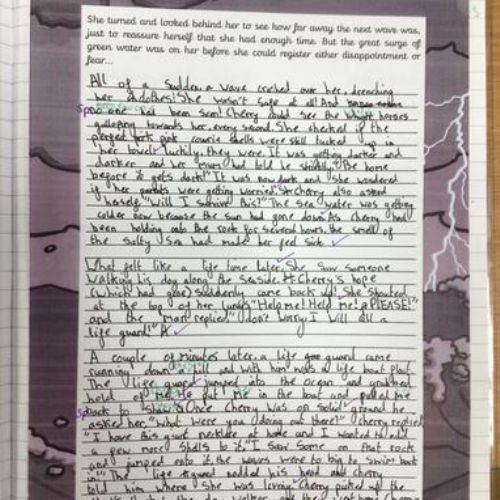 She turned and looked behind her to see how far away the next wave was,
just to reassure herself that she had enough time. But the great surge of
green water was on her before she could register either disappointment or
fear...
All of a sudden, a wave crashed over her, drenching
her clothes! She wasn't safe at all! And
no one had been seen! Cherry could see the horses
galloping towards her, every second. She checked if the
pink cowrie shells were still tucked up in
her towel luckily, they were. It was getting darker and
darker and her mum had told he strictly "Be home
before it gets dark!" It was now dark and she wondered
if her parents were getting worried. Cherry also asked
herself, "Will I survive this?" The sea water was getting
colder now because the sun had gone down. As Cherry had
been holding onto the rock for several hours, the smell of
the salty sea had made her feel sick.
What felt like a life time later, She saw someone
walking his dog along the seaside. Cherry's hope
(which had gone) suddenly came back up! She shouted
at the top of her lungs "Help me! Held me! PLEASE!"
and the man replied, "don't worry I will call a
life guard!"
A couple of minutes later, a life guard came
running down hill and with him was a life boat float.
The life guard jumped into the ocean and grabbed
held of me. He put me in the boat and pulled me
back to shore. Once Cherry was on solid ground he
asked her, "What were you doing out there?" Cherry replied
"I have this necklace at home and I wanted to add
a few more shells. I saw some on that rock
and jumped onto it the waves were to big to swim back
in" The life guard nodded his head and cherry
told him where she was living. Cherry picked up the